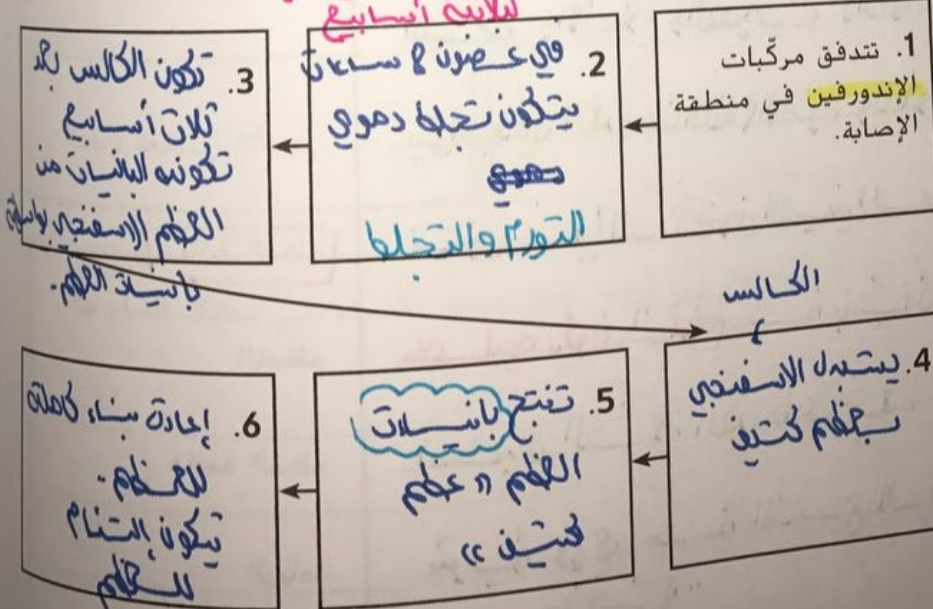 ثلاثة أسابيع
1. تتدفق مركّبات
الإندورفين في منطقة
الإصابة.
2. في غضون 8 ساعات
يتكون تجلط دموي
التورم والتجلط
3. تكون الكالس بعد
ثلاث أسابيع
تكونه البانيات من
العظم الاسفنجي بواسطة
بانيات العظم.
الكالس
4. يستبدل الاسفنجي
بعظم كثيف
5. تنتج بانيات
العظم " عظم
كثيف "
6. إعادة بناء كاملة
للعظم.
يكون التئام
للعظم